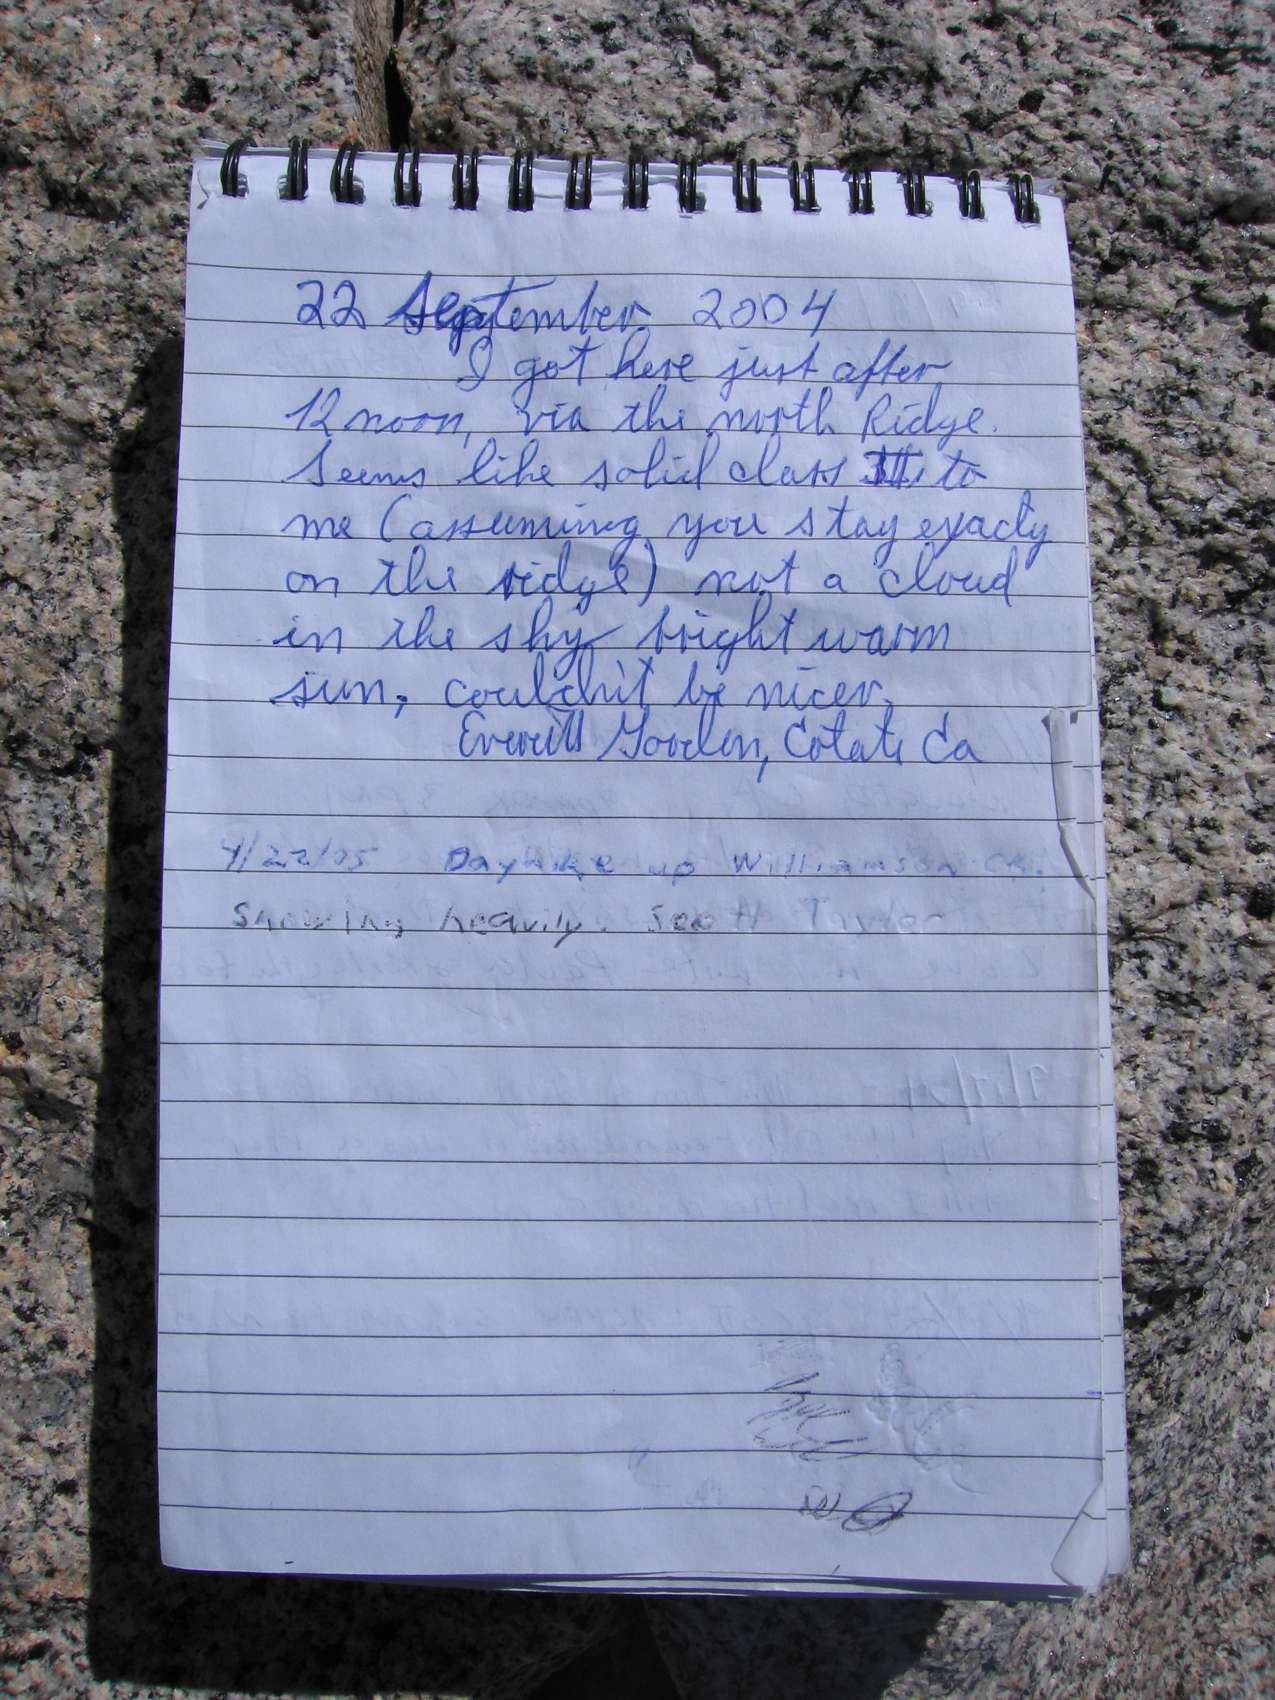 22 September 2004
I got here just after
12 noon, via the north Ridge.
Seems like solid class III to
me (assuming you stay exactly
on the ridge) not a cloud
in the sky bright warm
sun, couldn't be nicer.
Gooden, Cotati Ca
4/22/05 Dayhike up Williamson Ck.
Snowing heavily. Scott Taylor